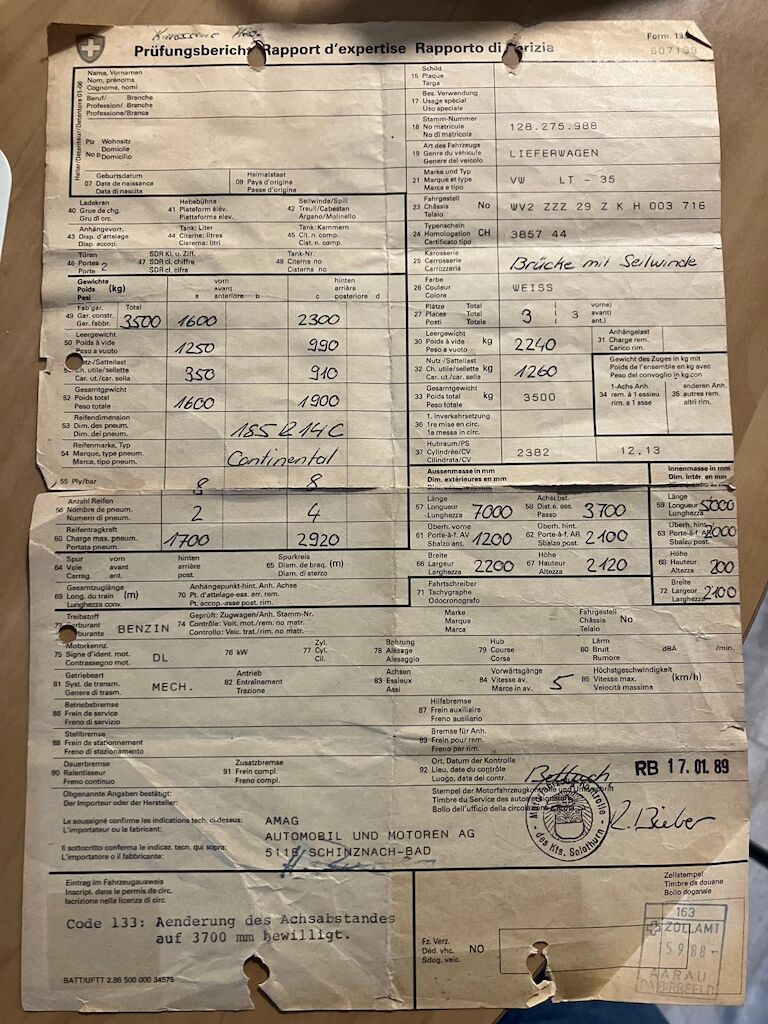 Form. 13.
Prüfungsbericht Rapport d'expertise Rapporto di perizia
607139
Name, Vornamen
Nom, prénoms
Cognome, nomi
Beruf/ Branche
Profession/ Branche
Professione/Branca
Plz Wohnsitz
No Domicile
p Domicilio
Halter/Détenteur/Detentore 01-06
Geburtsdatum
07 Date de naissance
Data di nascita
Heimatstaat
08 Pays d'origine
Paese d'origine
Schild
15 Plaque
Targa
Bes. Verwendung
17 Usage spécial
Uso speciale
Stamm-Nummer
18 No matricule 128.275.988
No di matricola
Art des Fahrzeugs
19 Genre du véhicule LIEFERWAGEN
Genere del veicolo
Marke und Typ
21 Marque et type VW LT - 35
Marca e tipo
Fahrgestell
23 Châssis No WV2 ZZZ 29 Z K H 003 716
Telaio
Typenschein
24 Homologation CH 3857 44
Certificato tipo
Karosserie
25 Carrosserie Brücke mit Seilwinde
Carrozzeria
Farbe
26 Couleur WEISS
Colore
Plätze Total vorne)
27 Places Total 3 ( 3 avant)
Posti Totale ant.)
Leergewicht
30 Poids à vide kg 2240
Peso a vuoto
Anhängelast
31 Charge rem.
Carico rim.
Nutz-/Sattellast
32 Ch. utile/sellette kg 1260
Car. ut./car. sella
Gesamtgewicht
33 Poids total kg 3500
Peso totale
Gewicht des Zuges in kg mit
Poids de l'ensemble en kg avec
Peso del convoglio in kg con
1-Achs Anh.
34 rem. à 1 essieu
rim. a 1 asse
anderen Anh.
35 autres rem.
altri rim.
1. Inverkehrsetzung
36 1re mise en circ.
1a messa in circ.
Hubraum/PS
37 Cylindrée/CV 2382 12.13
Cilindrata/CV
Ladekran
40 Grue de chg.
Gru di circ.
Hebebühne
41 Plateform élév.
Piattaforma elev.
Seilwinde/Spill
42 Treuil/Cabestan
Argano/Molinello
Anhängevorr.
43 Disp. d'attelage
Disp. accop.
Tank: Liter
44 Citerne: litres
Cisterna: litri
Tank: Kammern
45 Cit. n. comp.
Cist. n. comp.
Türen
46 Portes 2
Porte
SDR Kl. u. Ziff.
47 SDR cl. chiffre
SDR cl. cifra
Tank-Nr.
48 Citerne no
Cisterna no
Gewichte
Poids (kg)
Pesi
vorn
avant
a anteriore b
hinten
arrière
c posteriore d
Fab'gar. Total
49 Gar. constr. 3500 1600 2300
Gar. fabbr.
Leergewicht
50 Poids à vide 1250 990
Peso a vuoto
Nutz-/Sattellast
Ch. utile/sellette 350 910
Car. ut./car. sella
Gesamtgewicht
52 Poids total 1600 1900
Peso totale
Reifendimension
53 Dim. des pneum. 185 R 14 C
Dim. dei pneum.
Reifenmarke, Typ
54 Marque, type pneum. Continental
Marca, tipo pneum.
55 Ply/bar 8 8
Anzahl Reifen
56 Nombre de pneum. 2 4
Numero di pneum.
Reifentragkraft
60 Charge max. pneum. 1700 2920
Portata pneum.
Aussenmasse in mm
Dim. extérieures en mm
Innenmasse in mm
Dim. intér. en mm
Länge
57 Longueur 7000
Lunghezza
Achsabst.
58 Dist. e. ess. 3700
Passo
Länge
59 Longueur 5000
Lunghezza
Überh. vorne
61 Porte-à-f. AV 1200
Sbalzo ant.
Überh. hint.
62 Porte-à-f. AR 2100
Sbalzo post.
Überh. hint.
63 Porte-à-f. AR
Sbalzo post.
Breite
66 Largeur 2200
Larghezza
Höhe
67 Hauteur 2120
Altezza
Höhe
68 Hauteur
Altezza
Spur vorn hinten
64 Voie avant arrière
Carreg. ant. post.
Spurkreis
65 Diam. de braq. (m)
Diam. di sterzo
Gesamtzuglänge
69 Long. du train (m)
Lunghezza conv.
Anhängepunkt-hint. Anh. Achse
70 Pt. d'attelage-ess. arr. rem.
Pt. accop.-asse post. rim.
Fahrtschreiber
71 Tachygraphe
Odocronografo
Breite
72 Largeur 2100
Larghezza
Treibstoff
73 Carburant BENZIN
Carburante
Geprüft: Zugwagen/Anh. Stamm-Nr.
74 Contrôle: Voit. mot./rem. no matr.
Controllo: Veic. trat./rim. no matr.
Marke
Marque
Marca
Fahrgestell
Châssis No
Telaio
Motorkennz.
75 Signe d'ident. mot. DL
Contrassegno mot.
76 kW
Zyl.
77 Cyl.
Cil.
Bohrung
78 Alésage
Alesaggio
Hub
79 Course
Corsa
Lärm
80 Bruit dBA /min.
Rumore
Getriebeart
81 Syst. de transm. MECH.
Genere di trasm.
Antrieb
82 Entraînement
Trazione
Achsen
83 Essieux
Assi
Vorwärtsgänge
84 Vitesse av. 5
Marce in av.
Höchstgeschwindigkeit
85 Vitesse max. (km/h)
Velocità massima
Betriebsbremse
86 Frein de service
Freno di servizio
Hilfsbremse
87 Frein auxiliaire
Freno ausiliario
Stellbremse
88 Frein de stationnement
Freno di stazionamento
Bremse für Anh.
89 Frein pour rem.
Freno per rim.
Dauerbremse
90 Ralentisseur
Freno continuo
Zusatzbremse
91 Frein compl.
Freno compl.
Ort, Datum der Kontrolle
92 Lieu, date du contrôle Bellach RB 17.01.89
Luogo, data del contr.
Obgenannte Angaben bestätigt:
Der Importeur oder der Hersteller:
Le soussigné confirme les indications tech. ci-dessus:
L'importateur ou le fabricant:
Il sottoscritto conferma le indicaz. tecn. qui sopra:
L'importatore o il fabbricante:
AMAG
AUTOMOBIL UND MOTOREN AG
5116 SCHINZNACH-BAD
Stempel der Motorfahrzeugkontrolle und Unterschrift
Timbre du Service des automobiles
Bollo dell'ufficio della circolazione
Motorfahrzeugkontrolle
des Kts. Solothurn
R. Bieber
Eintrag im Fahrzeugausweis
Inscript. dans le permis de circ.
Iscrizione nella licenza di circ.
Code 133: Aenderung des Achsabstandes
auf 3700 mm bewilligt.
Fz. Verz.
Déd. vhc. NO
Sdog. veic.
Zollstempel
Timbre de douane
Bollo doganale
163
ZOLLAMT
15.9.88
AARAU
BATT/UFTT 2.86 500 000 34575